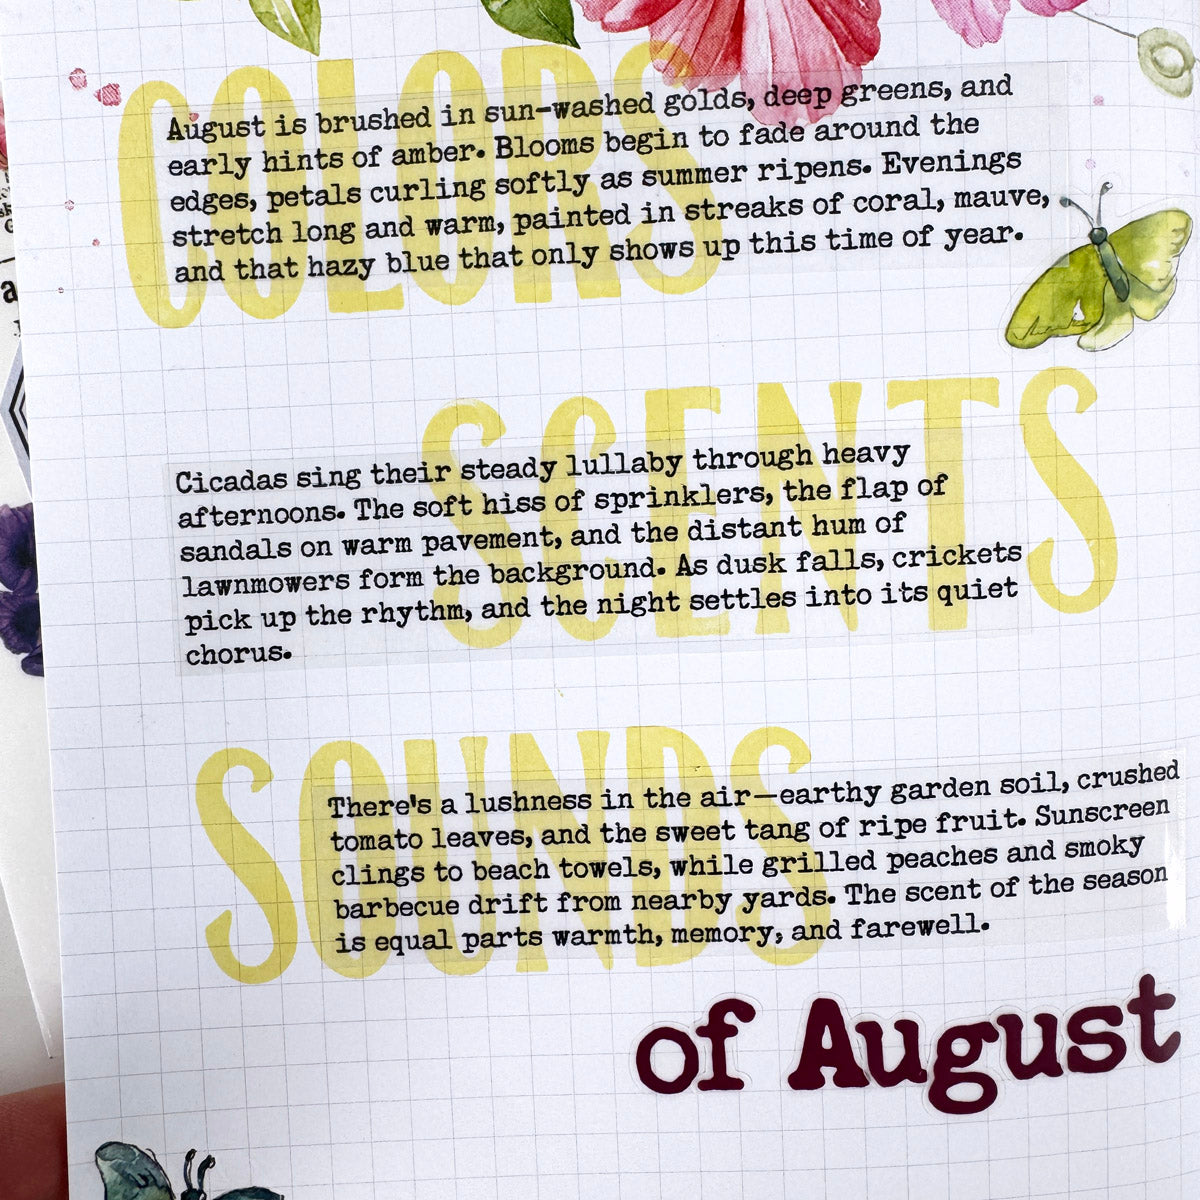 COLORS
August is brushed in sun-washed golds, deep greens, and
early hints of amber. Blooms begin to fade around the
edges, petals curling softly as summer ripens. Evenings
stretch long and warm, painted in streaks of coral, mauve,
and that hazy blue that only shows up this time of year.
SCENTS
Cicadas sing their steady lullaby through heavy
afternoons. The soft hiss of sprinklers, the flap of
sandals on warm pavement, and the distant hum of
lawnmowers form the background. As dusk falls, crickets
pick up the rhythm, and the night settles into its quiet
chorus.
SOUNDS
There's a lushness in the air—earthy garden soil, crushed
tomato leaves, and the sweet tang of ripe fruit. Sunscreen
clings to beach towels, while grilled peaches and smoky
barbecue drift from nearby yards. The scent of the season
is equal parts warmth, memory, and farewell.
of August